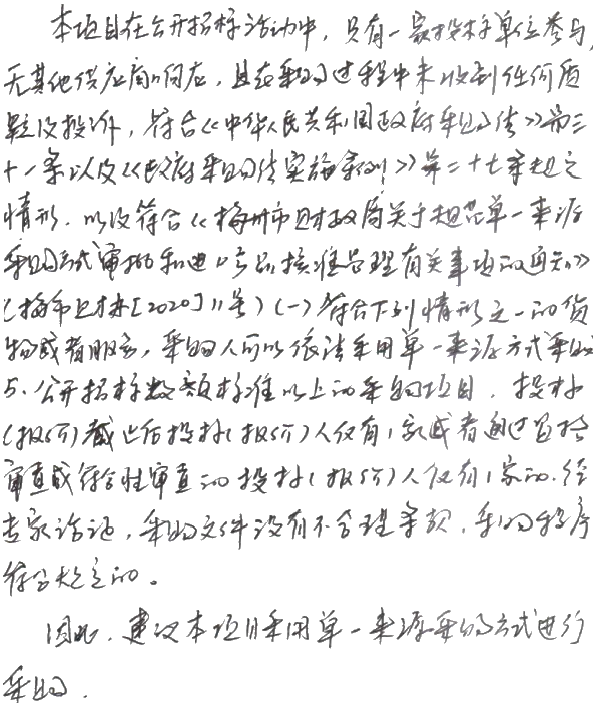 本项目在公开招标活动中，只有一家投标单位参与，
无其他供应商响应，且在采购过程中未收到任何质
疑及投诉，符合《中华人民共和国政府采购法》第三
十一条以及《政府采购法实施条例》第二十七条规定
情形，以及符合《梅州市财政局关于规范单一来源
采购方式审批和进口产品核准办理有关事项的通知》
（梅市财采[2020]11号）（一）符合下列情形之一的货
物或者服务，采购人可以依法采用单一来源方式采购
5.公开招标数额标准以上的采购项目，投标
（报价）截止后投标（报价）人仅有1家或者通过资格
审查或符合性审查的投标（报价）人仅有1家的，经
专家论证，采购文件没有不合理条款，采购程序
符合规定的。
因此，建议本项目采用单一来源采购方式进行
采购.